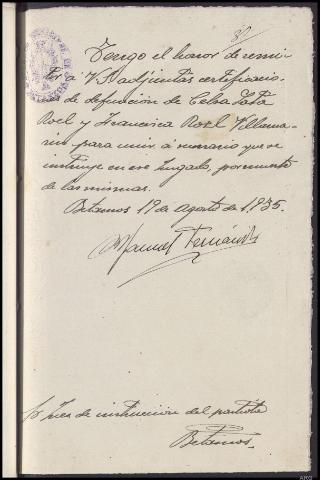 Tengo el honor de remi-
tir á V.S. adjuntas certificacio-
nes de defunción de Celsa Tata
Roel y Francisca Roel Villama-
rin para unir á sumario que se
instruye en ese Juzgado, por muerte
de las mismas.
Betanzos 19 de Agosto de 1.935.
Manuel Fernández
Sr Juez de instrucción del partido
Betanzos.